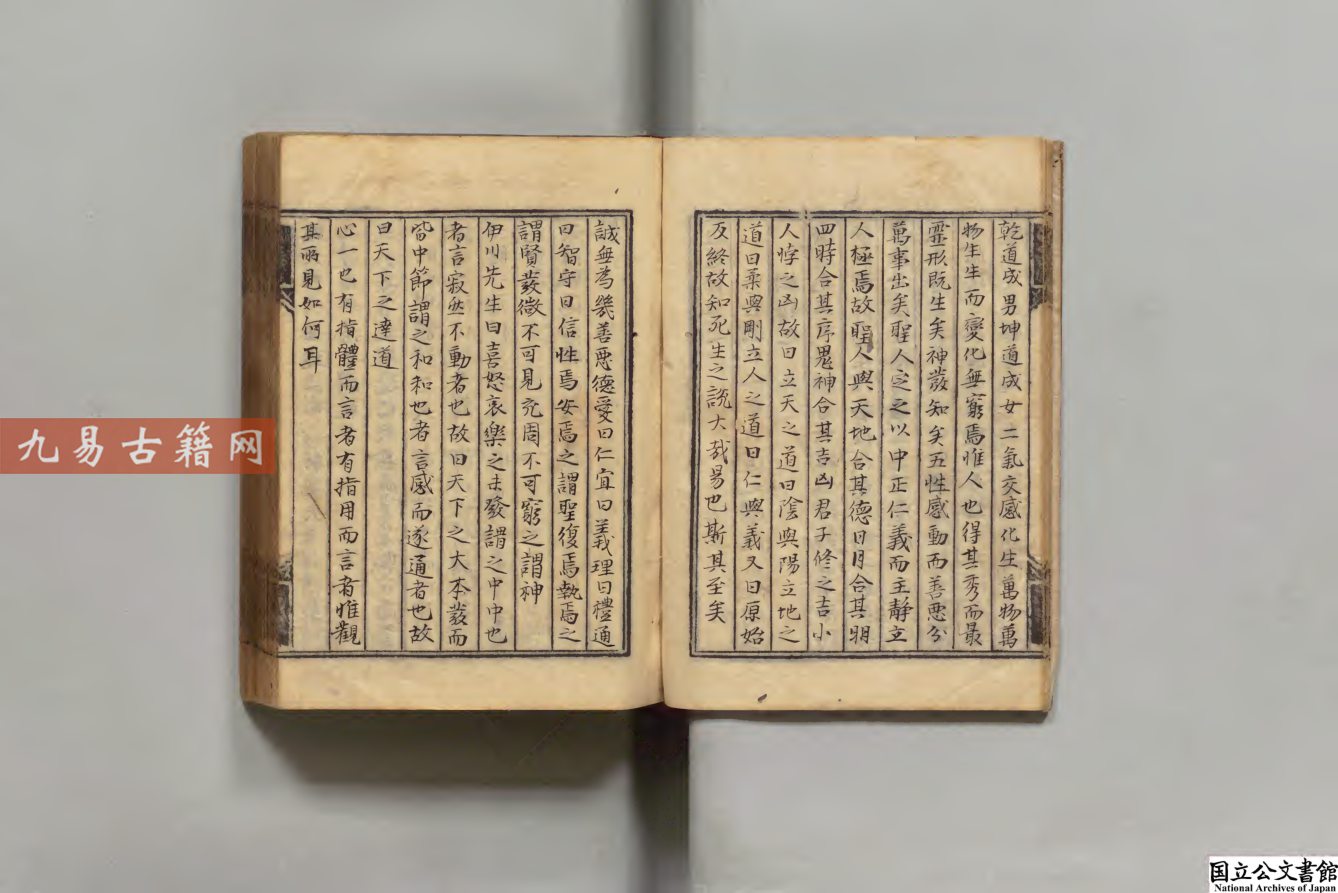 乾道成男坤道成女二氣交感化生萬物萬
物生生而變化無窮焉惟人也得其秀而最
靈形既生矣神發知矣五性感動而善惡分
萬事出矣聖人定之以中正仁義而主靜立
人極焉故聖人與天地合其德日月合其明
四時合其序鬼神合其吉凶君子修之吉小
人悖之凶故曰立天之道曰陰與陽立地之
道曰柔與剛立人之道曰仁與義又曰原始
反終故知死生之説大哉易也斯其至矣
誠無為幾善惡德愛曰仁宜曰義理曰禮通
曰智守曰信性焉安焉之謂聖復焉執焉之
謂賢發微不可見充周不可窮之謂神
伊川先生曰喜怒哀樂之未發謂之中中也
者言寂然不動者也故曰天下之大本發而
皆中節謂之和和也者言感而遂通者也故
曰天下之達道
心一也有指體而言者有指用而言者惟觀
其所見如何耳
九易古籍网
国立公文書館
National Archives of Japan